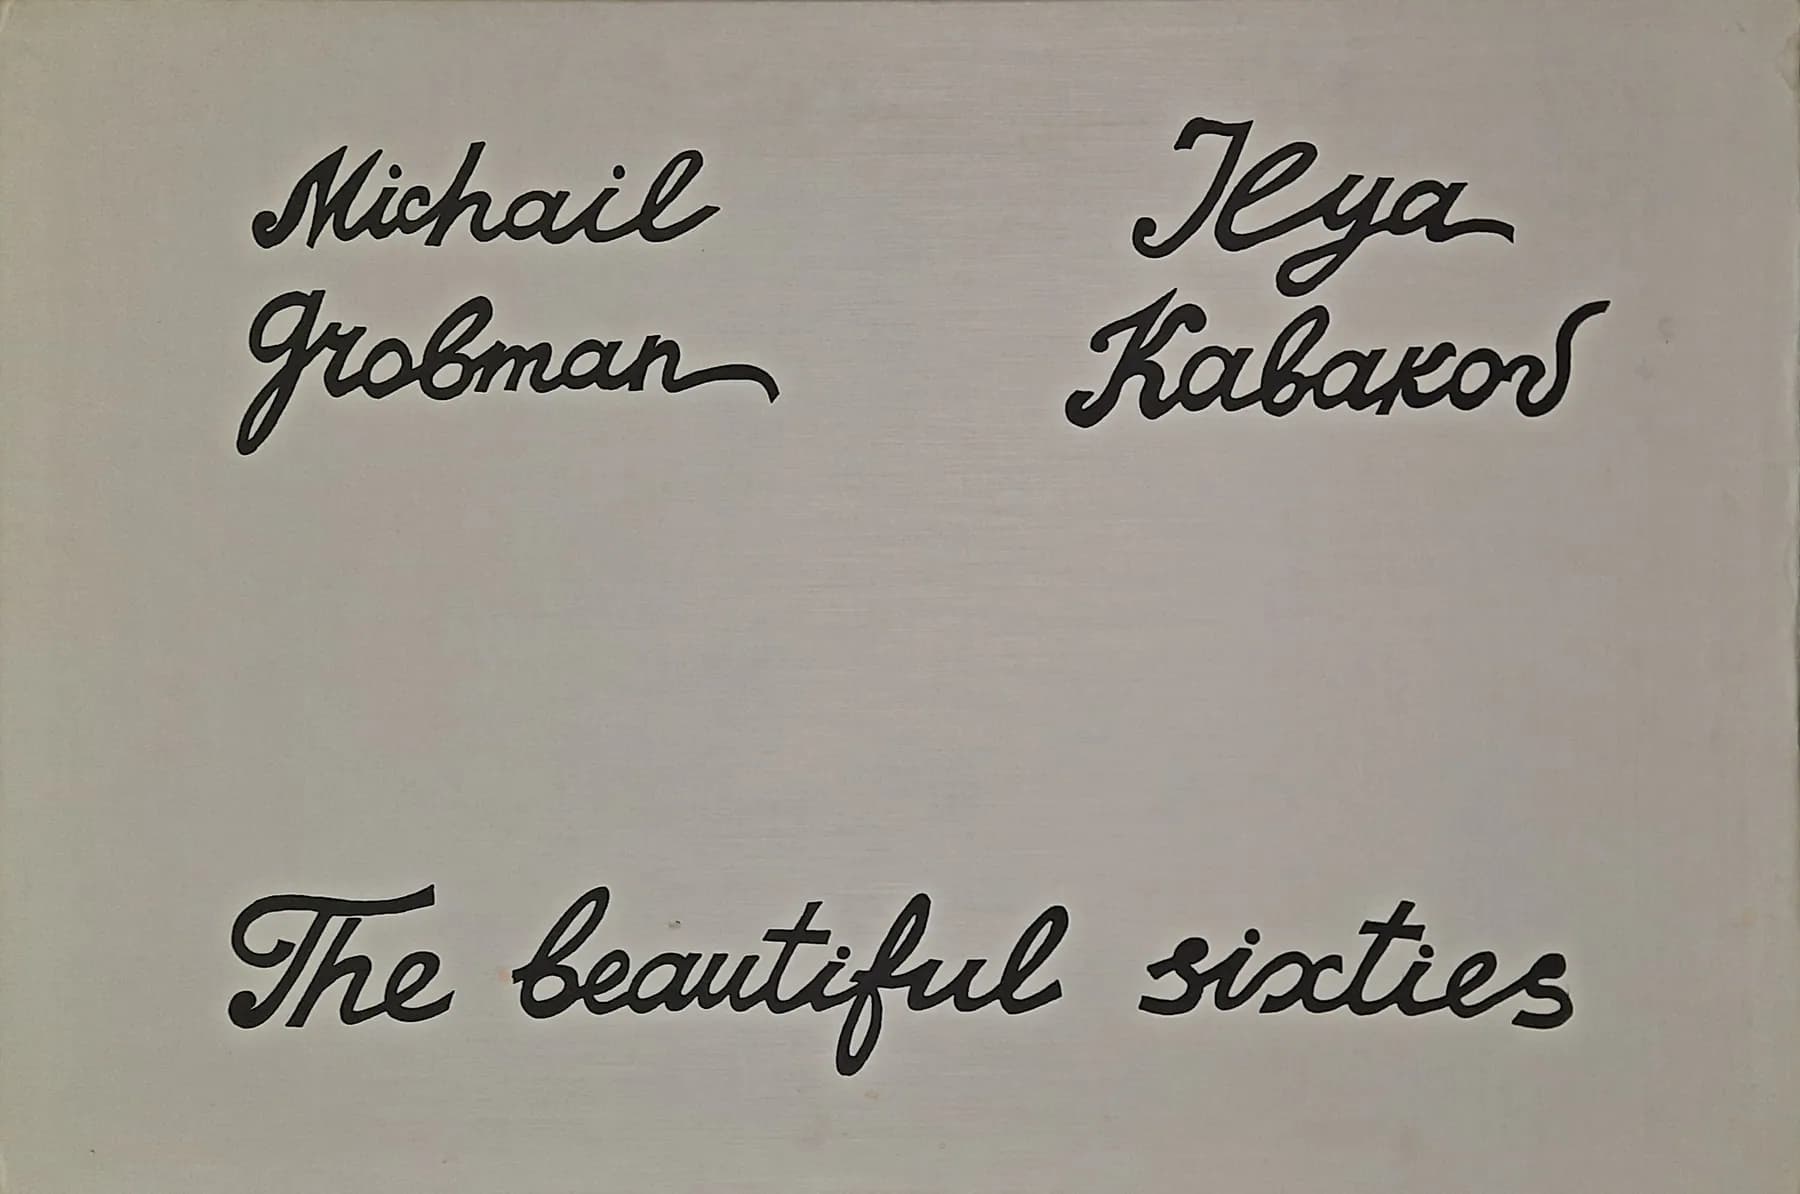 Michail
Grobman
Ilya
Kabakov
The beautiful sixties